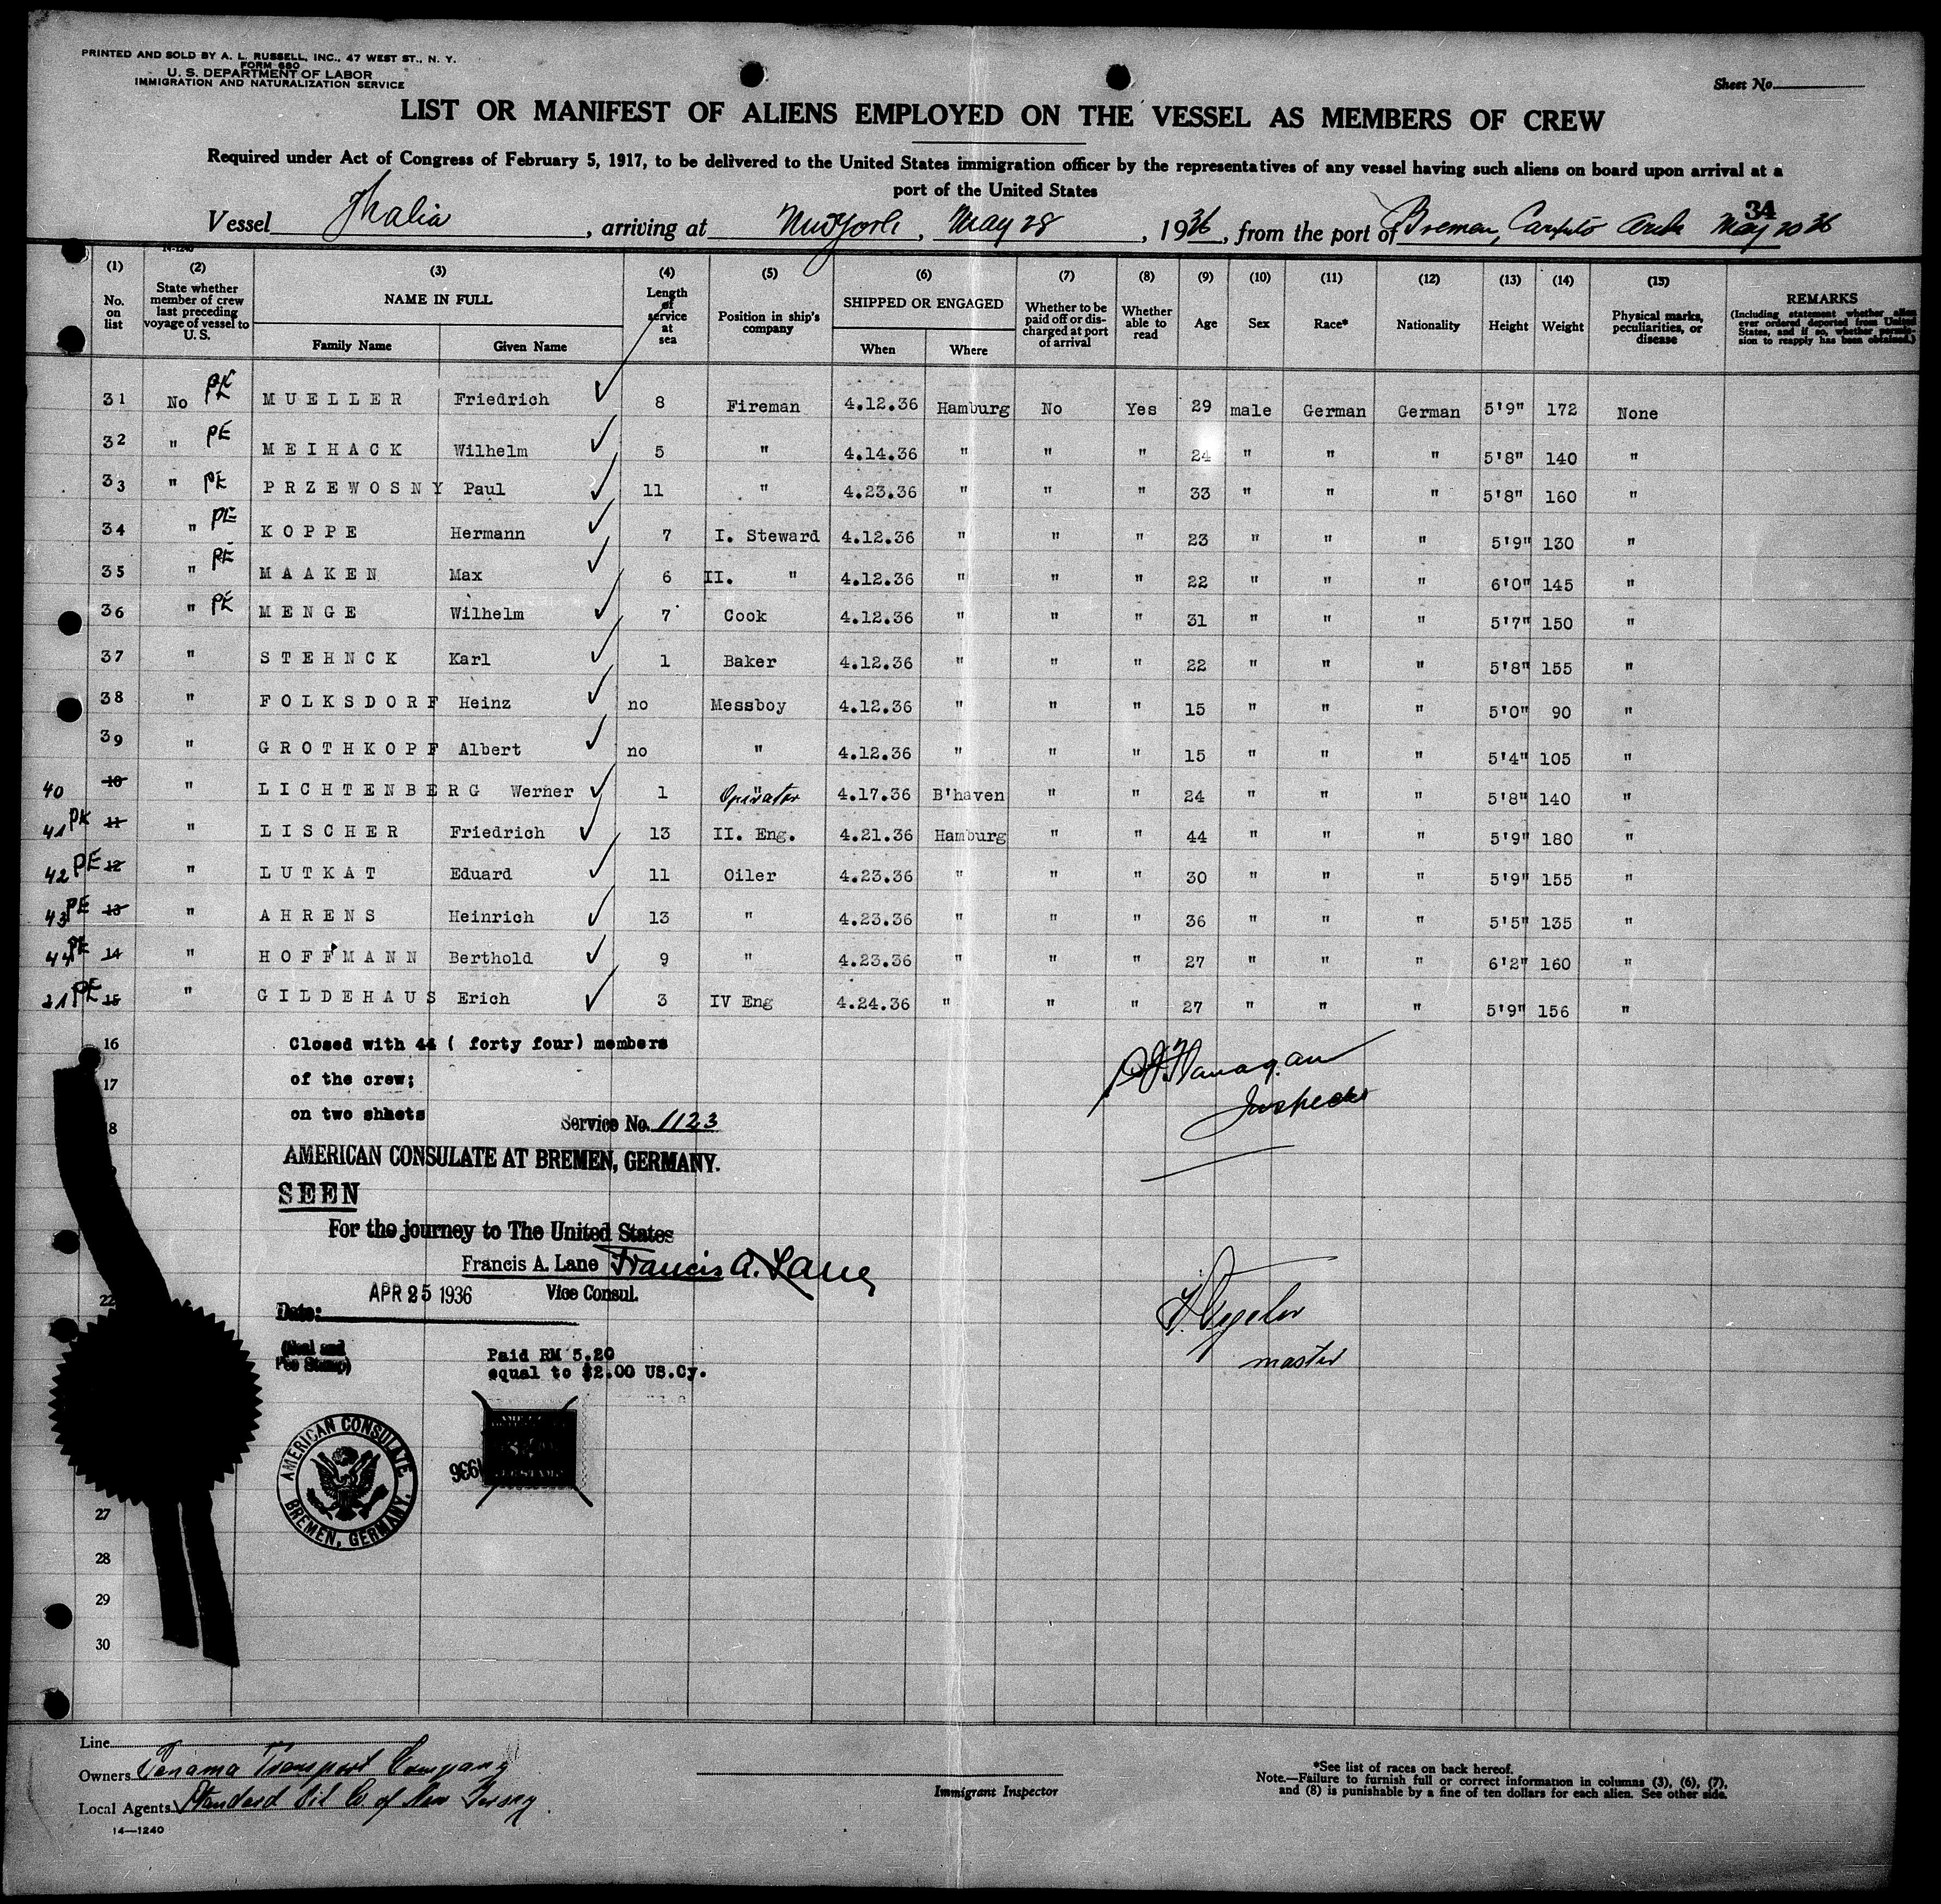 PRINTED AND SOLD BY A. L. RUSSELL, INC., 47 WEST ST., N. Y.
FORM 680
U. S. DEPARTMENT OF LABOR
IMMIGRATION AND NATURALIZATION SERVICE
Sheet No.
LIST OR MANIFEST OF ALIENS EMPLOYED ON THE VESSEL AS MEMBERS OF CREW
Required under Act of Congress of February 5, 1917, to be delivered to the United States immigration officer by the representatives of any vessel having such aliens on board upon arrival at a
port of the United States
34
Vessel Thalia, arriving at New York, May 28, 1936, from the port of Bremen, May 20 36
(1) (2) (3) (4) (5) (6) (7) (8) (9) (10) (11) (12) (13) (14) (15)
No. on list State whether member of crew last preceding voyage of vessel to U. S. NAME IN FULL Family Name Given Name Length of service at sea Position in ship's company SHIPPED OR ENGAGED When Where Whether to be paid off or discharged at port of arrival Whether able to read Age Sex Race* Nationality Height Weight Physical marks, peculiarities, or disease REMARKS (Including statement whether alien ever ordered deported from United States, and if so, whether permission to reapply has been obtained.)
31 No PK MUELLER Friedrich ✓ 8 Fireman 4.12.36 Hamburg No Yes 29 male German German 5'9" 172 None
32 " PE MEIHACK Wilhelm ✓ 5 " 4.14.36 " " " 24 " " " 5'8" 140 "
33 " PE PRZEWOSNY Paul ✓ 11 " 4.23.36 " " " 33 " " " 5'8" 160 "
34 " PE KOPPE Hermann ✓ 7 I. Steward 4.12.36 " " " 23 " " " 5'9" 130 "
35 " PE MAAKEN Max ✓ 6 II. " 4.12.36 " " " 22 " " " 6'0" 145 "
36 " PE MENGE Wilhelm ✓ 7 Cook 4.12.36 " " " 31 " " " 5'7" 150 "
37 " STEHNCK Karl ✓ 1 Baker 4.12.36 " " " 22 " " " 5'8" 155 "
38 " FOLKSDORF Heinz ✓ no Messboy 4.12.36 " " " 15 " " " 5'0" 90 "
39 " GROTHKOPF Albert ✓ no " 4.12.36 " " " 15 " " " 5'4" 105 "
40 10 " LICHTENBERG Werner ✓ 1 Operator 4.17.36 B'haven " " 24 " " " 5'8" 140 "
41 PK 11 " LISCHER Friedrich ✓ 13 II. Eng. 4.21.36 Hamburg " " 44 " " " 5'9" 180 "
42 PE 12 " LUTKAT Eduard ✓ 11 Oiler 4.23.36 " " " 30 " " " 5'9" 155 "
43 PE 13 " AHRENS Heinrich ✓ 13 " 4.23.36 " " " 36 " " " 5'5" 135 "
44 PE 14 " HOFFMANN Berthold ✓ 9 " 4.23.36 " " " 27 " " " 6'2" 160 "
21 PE 15 " GILDEHAUS Erich ✓ 3 IV Eng 4.24.36 " " " 27 " " " 5'9" 156 "
16 Closed with 44 ( forty four) members
17 of the crew;
18 on two shhets
Service No. 1123
P.J. Flanagan
Inspector
AMERICAN CONSULATE AT BREMEN, GERMANY.
SEEN
For the journey to The United States
Francis A. Lane Francis A. Lane
Vice Consul.
22
APR 25 1936
Date:
(Seal and
Fee Stamp)
Paid RM 5.20
equal to $2.00 US.Cy.
master
AMERICAN CONSULATE
BREMEN, GERMANY.
1936
27
28
29
30
Line
Owners Panama Transport Company
Local Agents Standard Oil Co of New Jersey
14—1240
Immigrant Inspector
*See list of races on back hereof.
Note.—Failure to furnish full or correct information in columns (3), (6), (7),
and (8) is punishable by a fine of ten dollars for each alien. See other side.